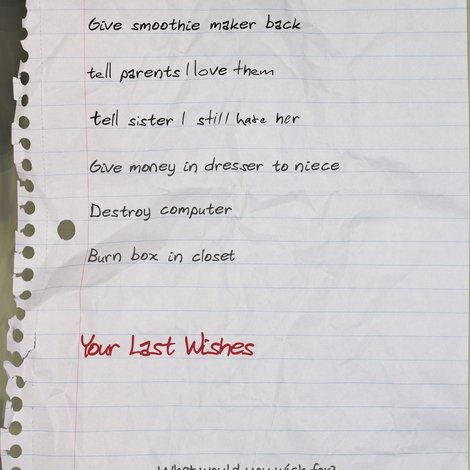 Give smoothie maker back
tell parents I love them
tell sister I still hate her
Give money in dresser to niece
Destroy computer
Burn box in closet
Your Last Wishes
What would you wish for?